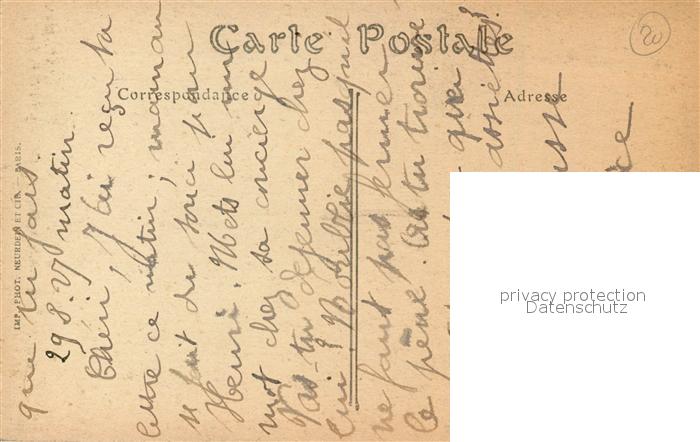 Carte Postale
20
Correspondance
Adresse
IMP. PHOT. NEURDEIN ET CIE. — PARIS.
que tu fais.
29.8.27 matin.
Chéri, J'ai reçu ta
lettre ce matin; maman
se fait du souci pour
Henri. Mets lui un
mot chez sa concierge
Vas-tu déjeuner chez
lui? N'oublie pas qu'il
ne faut pas fermer
le pène. As-tu trouvé
assiettes?
privacy protection
Datenschutz